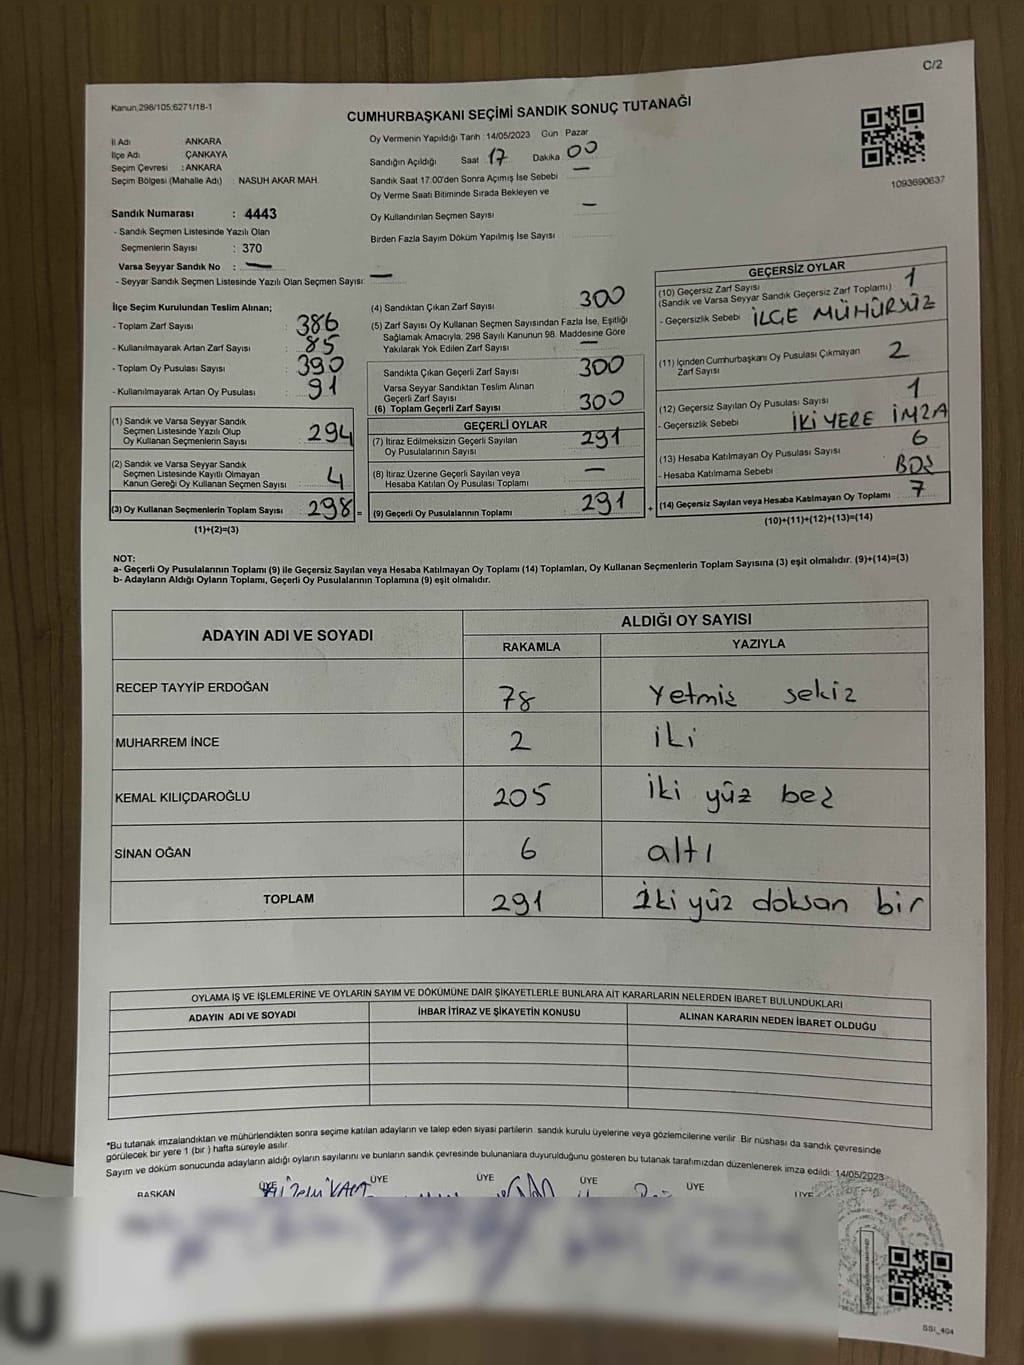 C/2
Kanun,298/105;6271/18-1
CUMHURBAŞKANI SEÇİMİ SANDIK SONUÇ TUTANAĞI
İl Adı ANKARA
İlçe Adı ÇANKAYA
Seçim Çevresi : ANKARA
Seçim Bölgesi (Mahalle Adı) : NASUH AKAR MAH.
Sandık Numarası : 4443
- Sandık Seçmen Listesinde Yazılı Olan
Seçmenlerin Sayısı : 370
Varsa Seyyar Sandık No : —
- Seyyar Sandık Seçmen Listesinde Yazılı Olan Seçmen Sayısı: —
Oy Vermenin Yapıldığı Tarih : 14/05/2023 Gün Pazar
Sandığın Açıldığı Saat 17 Dakika 00
Sandık Saat 17:00'den Sonra Açımış İse Sebebi —
Oy Verme Saati Bitiminde Sırada Bekleyen ve
Oy Kullandırılan Seçmen Sayısı —
Birden Fazla Sayım Döküm Yapılmış İse Sayısı
1093690637
İlçe Seçim Kurulundan Teslim Alınan;
- Toplam Zarf Sayısı : 386
- Kullanılmayarak Artan Zarf Sayısı : 85
- Toplam Oy Pusulası Sayısı : 390
- Kullanılmayarak Artan Oy Pusulası : 91
(1) Sandık ve Varsa Seyyar Sandık
Seçmen Listesinde Yazılı Olup
Oy Kullanan Seçmenlerin Sayısı 294
(2) Sandık ve Varsa Seyyar Sandık
Seçmen Listesinde Kayıtlı Olmayan
Kanun Gereği Oy Kullanan Seçmen Sayısı : 4
(3) Oy Kullanan Seçmenlerin Toplam Sayısı : 298 =
(1)+(2)=(3)
(4) Sandıktan Çıkan Zarf Sayısı 300
(5) Zarf Sayısı Oy Kullanan Seçmen Sayısından Fazla İse, Eşitliği
Sağlamak Amacıyla, 298 Sayılı Kanunun 98. Maddesine Göre
Yakılarak Yok Edilen Zarf Sayısı —
Sandıkta Çıkan Geçerli Zarf Sayısı 300
Varsa Seyyar Sandıktan Teslim Alınan
Geçerli Zarf Sayısı
(6) Toplam Geçerli Zarf Sayısı 300
GEÇERLİ OYLAR
(7) İtiraz Edilmeksizin Geçerli Sayılan
Oy Pusulalarının Sayısı 291
(8) İtiraz Üzerine Geçerli Sayılan veya
Hesaba Katılan Oy Pusulası Toplamı —
(9) Geçerli Oy Pusulalarının Toplamı 291 +
GEÇERSİZ OYLAR
(10) Geçersiz Zarf Sayısı 1
(Sandık ve Varsa Seyyar Sandık Geçersiz Zarf Toplamı) :
- Geçersizlik Sebebi İLÇE MÜHÜRSÜZ
(11) İçinden Cumhurbaşkanı Oy Pusulası Çıkmayan
Zarf Sayısı 2
(12) Geçersiz Sayılan Oy Pusulası Sayısı 1
- Geçersizlik Sebebi İKİ YERE İMZA
(13) Hesaba Katılmayan Oy Pusulası Sayısı 6
- Hesaba Katılmama Sebebi : BOŞ
(14) Geçersiz Sayılan veya Hesaba Katılmayan Oy Toplamı 7
(10)+(11)+(12)+(13)=(14)
NOT:
a- Geçerli Oy Pusulalarının Toplamı (9) ile Geçersiz Sayılan veya Hesaba Katılmayan Oy Toplamı (14) Toplamları, Oy Kullanan Seçmenlerin Toplam Sayısına (3) eşit olmalıdır. (9)+(14)=(3)
b- Adayların Aldığı Oyların Toplamı, Geçerli Oy Pusulalarının Toplamına (9) eşit olmalıdır.
ADAYIN ADI VE SOYADI ALDIĞI OY SAYISI
RAKAMLA YAZIYLA
RECEP TAYYİP ERDOĞAN 78 Yetmiş sekiz
MUHARREM İNCE 2 iki
KEMAL KILIÇDAROĞLU 205 iki yüz beş
SİNAN OĞAN 6 altı
TOPLAM 291 İki yüz doksan bir
OYLAMA İŞ VE İŞLEMLERİNE VE OYLARIN SAYIM VE DÖKÜMÜNE DAİR ŞİKAYETLERLE BUNLARA AİT KARARLARIN NELERDEN İBARET BULUNDUKLARI
ADAYIN ADI VE SOYADI İHBAR İTİRAZ VE ŞİKAYETİN KONUSU ALINAN KARARIN NEDEN İBARET OLDUĞU
*Bu tutanak imzalandıktan ve mühürlendikten sonra seçime katılan adayların ve talep eden siyasi partilerin sandık kurulu üyelerine veya gözlemcilerine verilir. Bir nüshası da sandık çevresinde
görülecek bir yere 1 (bir ) hafta süreyle asılır.
Sayım ve döküm sonucunda adayların aldığı oyların sayılarını ve bunların sandık çevresinde bulunanlara duyurulduğunu gösteren bu tutanak tarafımızdan düzenlenerek imza edildi. 14/05/2023
BAŞKAN ÜYE ÜYE ÜYE ÜYE ÜYE ÜYE
U
SSI_404